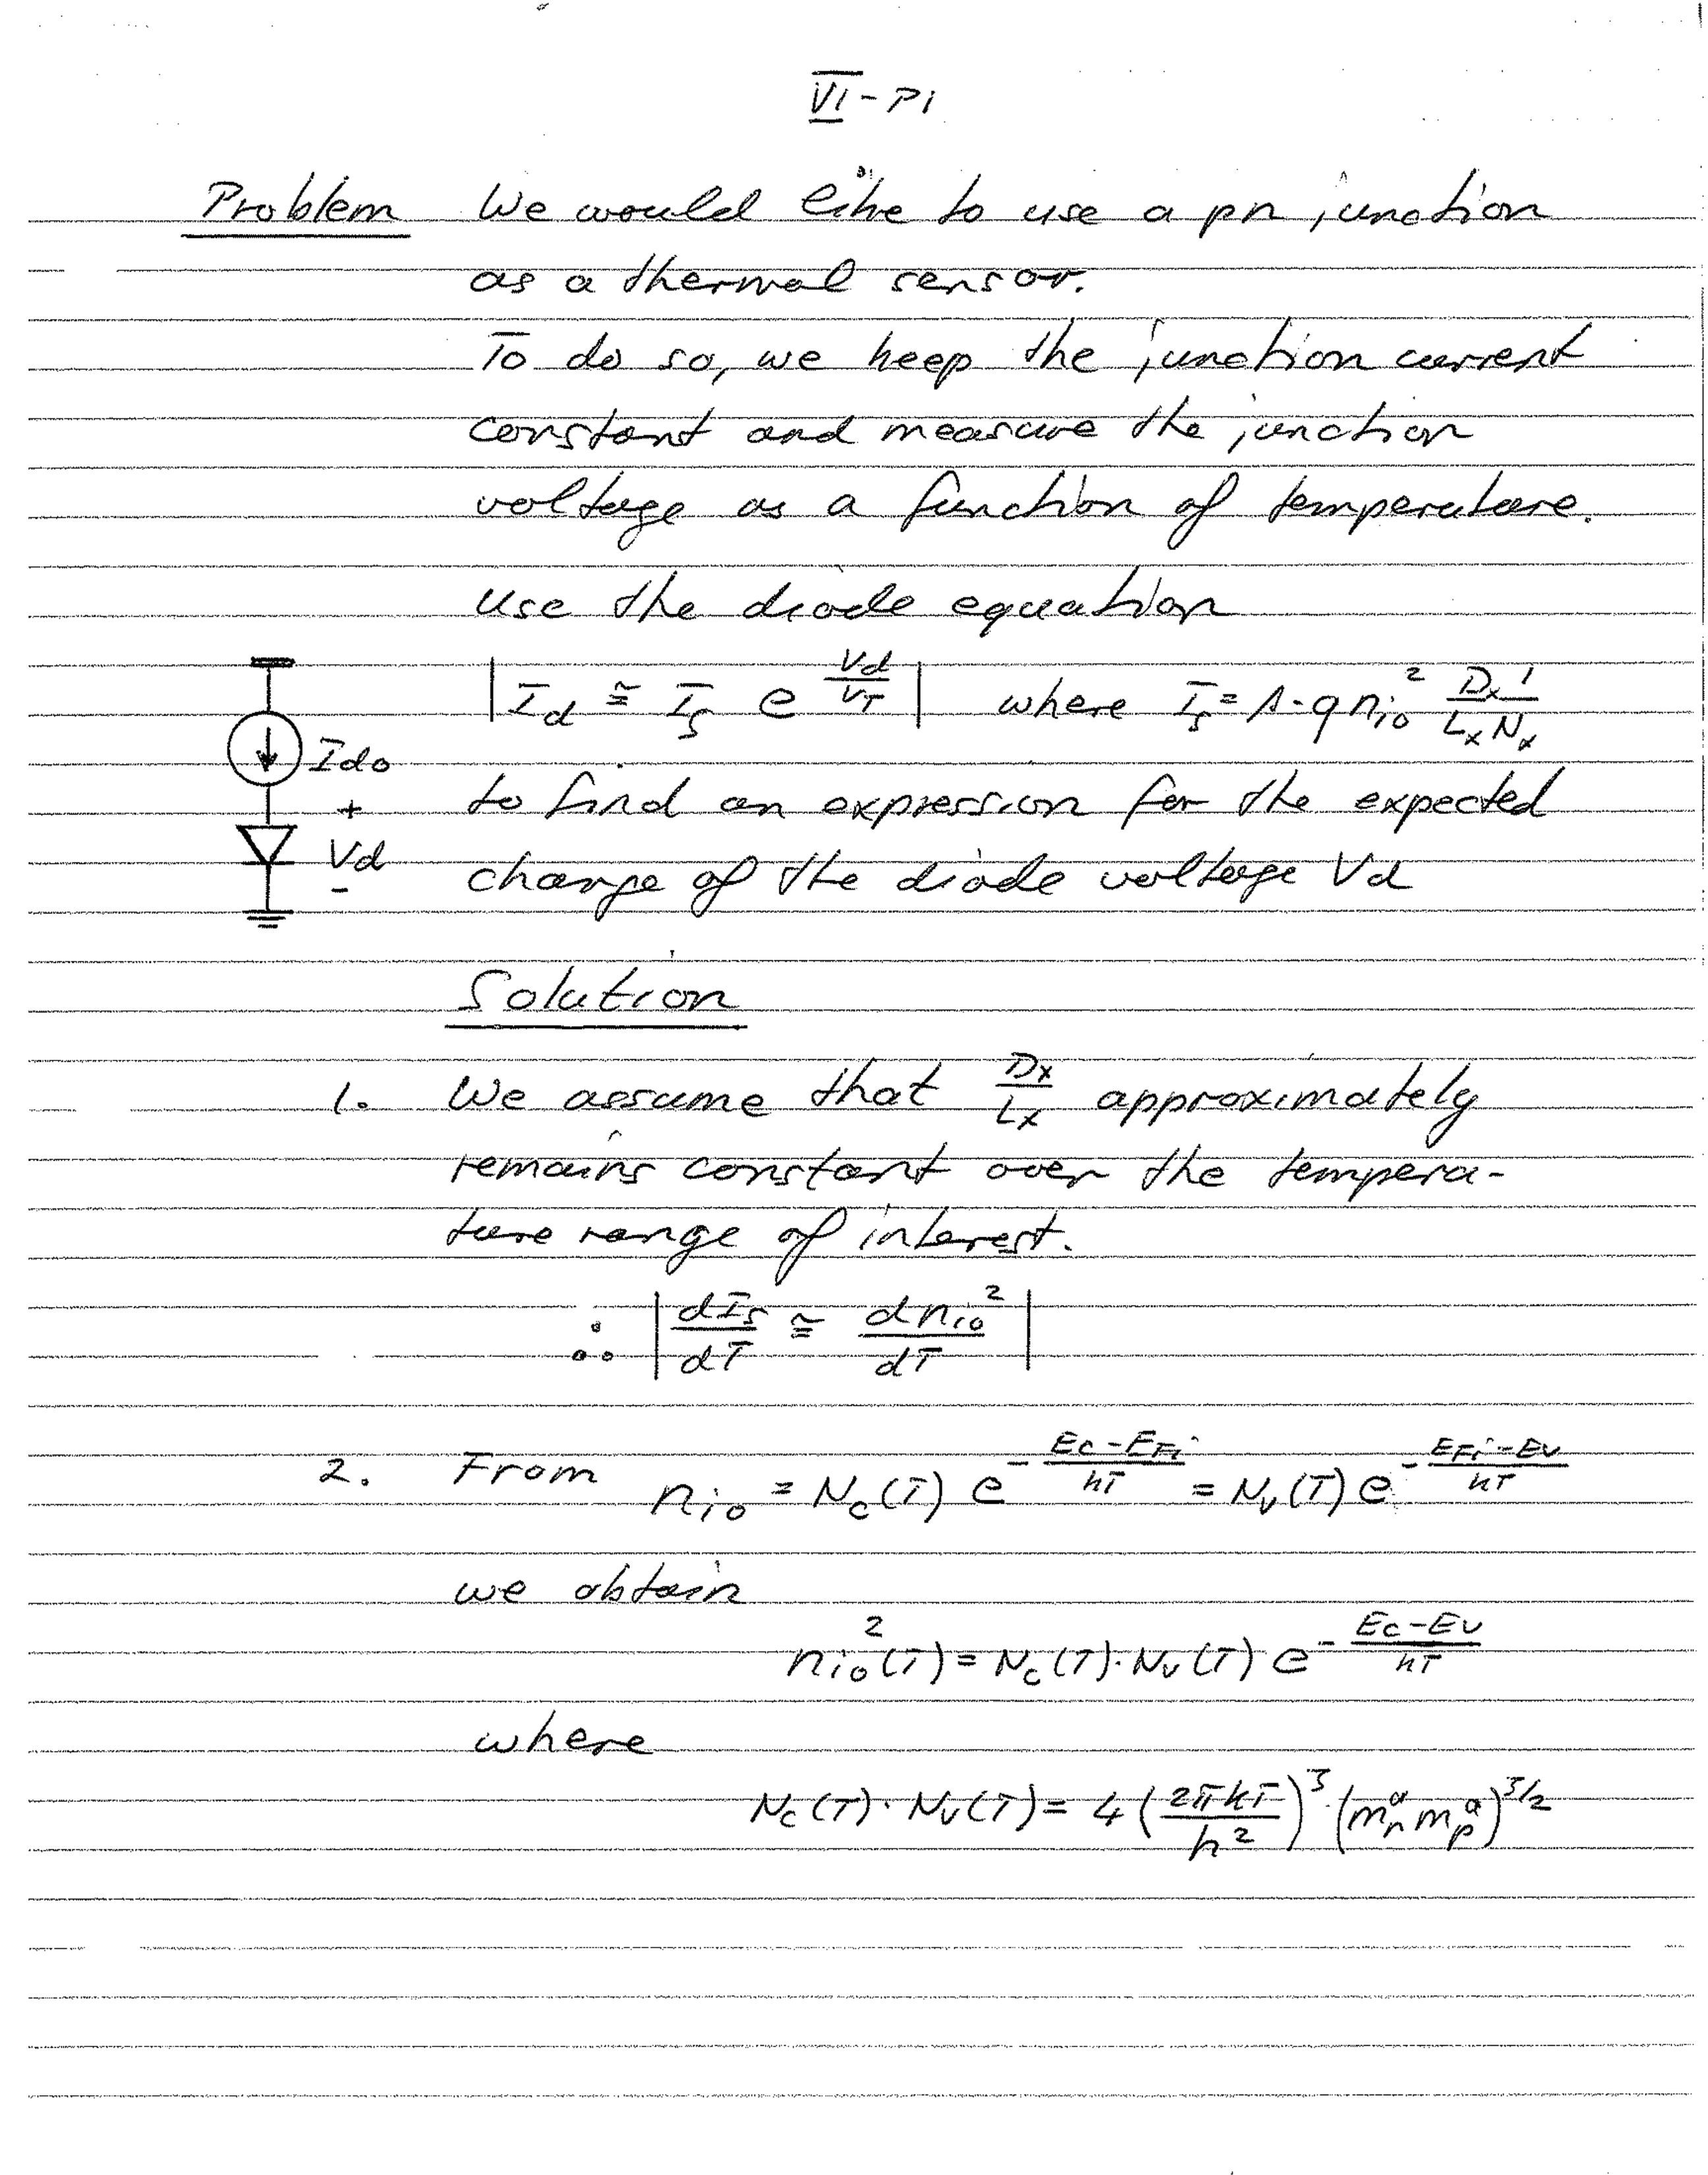 VI - P1
Problem We would like to use a pn junction
as a thermal sensor.
To do so, we keep the junction current
constant and measure the junction
voltage as a function of temperature.
Use the diode equation
| I_d ≅ I_S e^{V_d/V_T} | where I_S = A · q n_{io}^2 \frac{D_x}{L_x} \frac{1}{N_x}
Ido
to find an expression for the expected
+
Vd
-
change of the diode voltage Vd
Solution
1. We assume that \frac{D_x}{L_x} approximately
remains constant over the tempera-
ture range of interest.
∴ | \frac{dI_S}{dT} ≅ \frac{dn_{io}^2}{dT} |
2. From n_{io} = N_c(T) e^{-\frac{E_c - E_{Fi}}{kT}} = N_v(T) e^{-\frac{E_{Fi} - E_v}{kT}}
we obtain
n_{io}^2(T) = N_c(T) · N_v(T) e^{-\frac{E_c - E_v}{kT}}
where
N_c(T) · N_v(T) = 4 (\frac{2πkT}{h^2})^3 (m_n^* m_p^*)^{3/2}